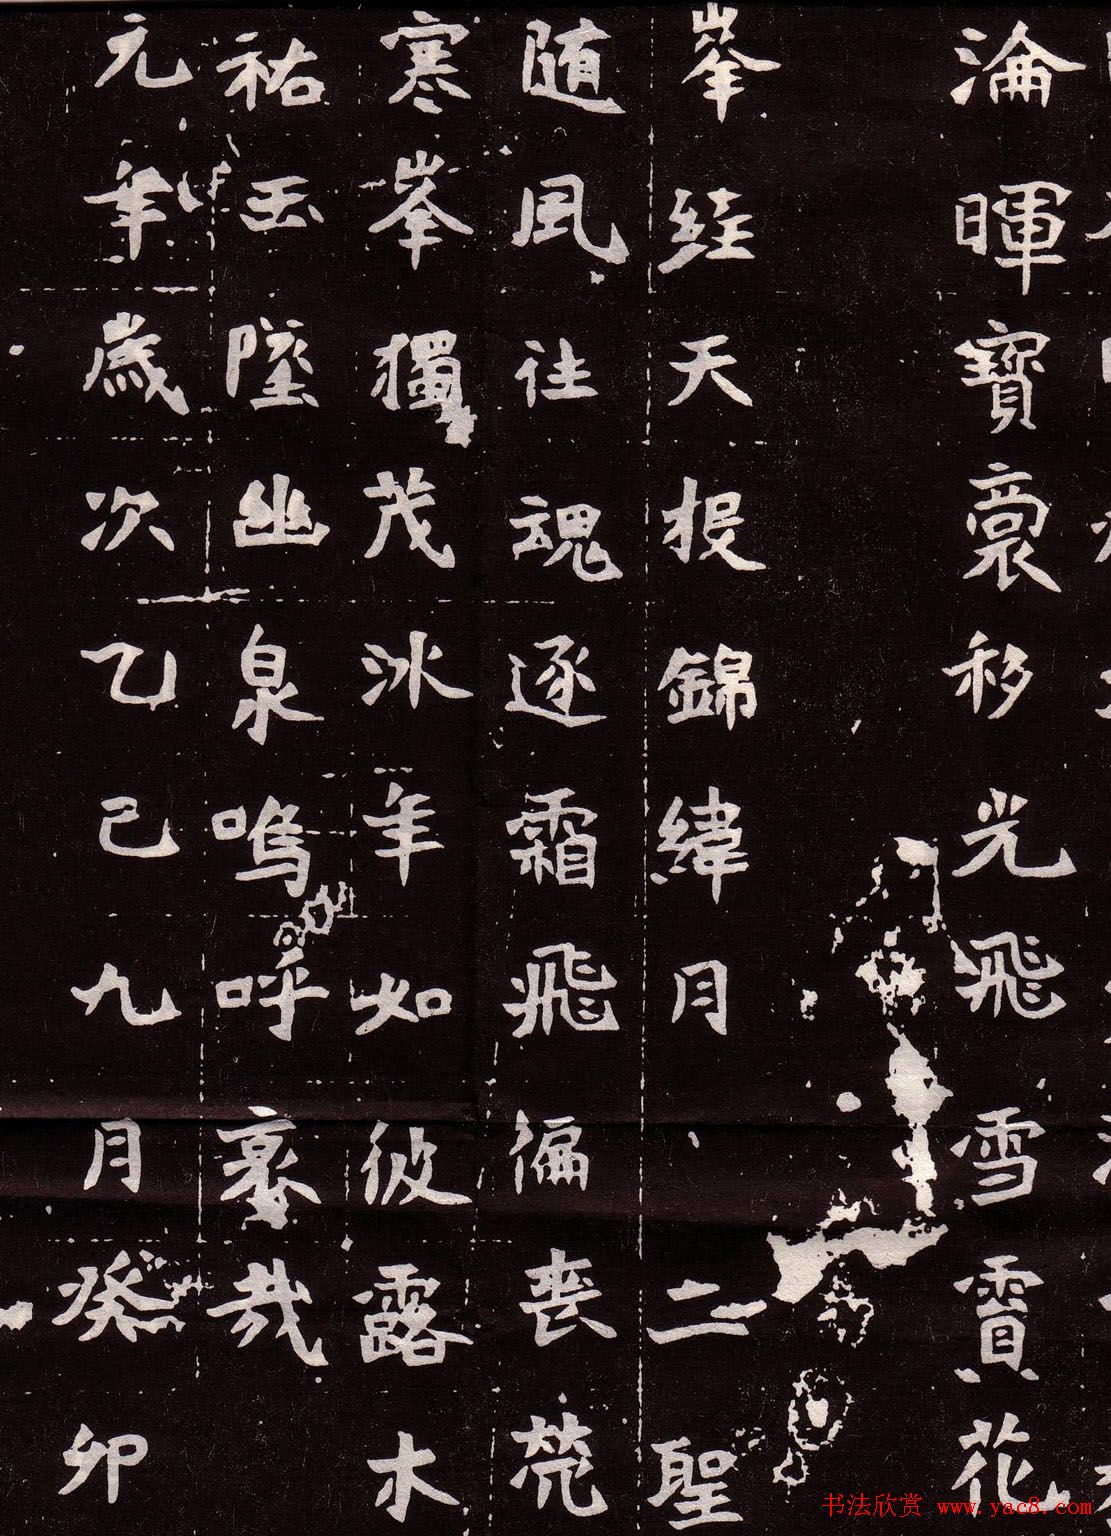 淪暉寶褱移光飛雪賈花
峯絓天投錦緯月二聖
随風往魂逐霜飛徧喪
寒峯獨茂冰年如彼露木
祐玉墜幽泉嗚呼哀哉
元年歲次乙己九月癸卯
书法欣赏 www.yac8.com